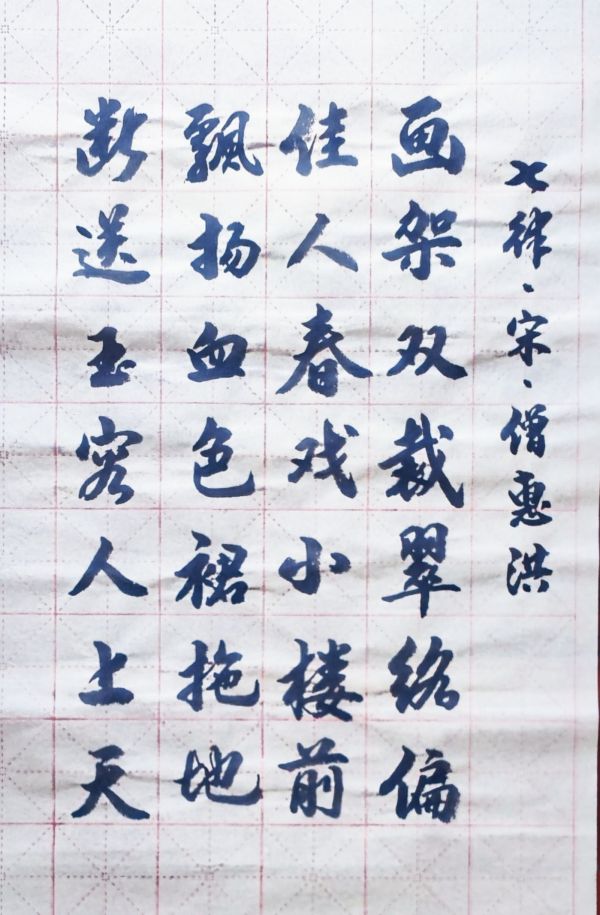 七律、宋、僧惠洪
画架双裁翠络偏
佳人春戏小楼前
飘扬血色裙拖地
断送玉容人上天